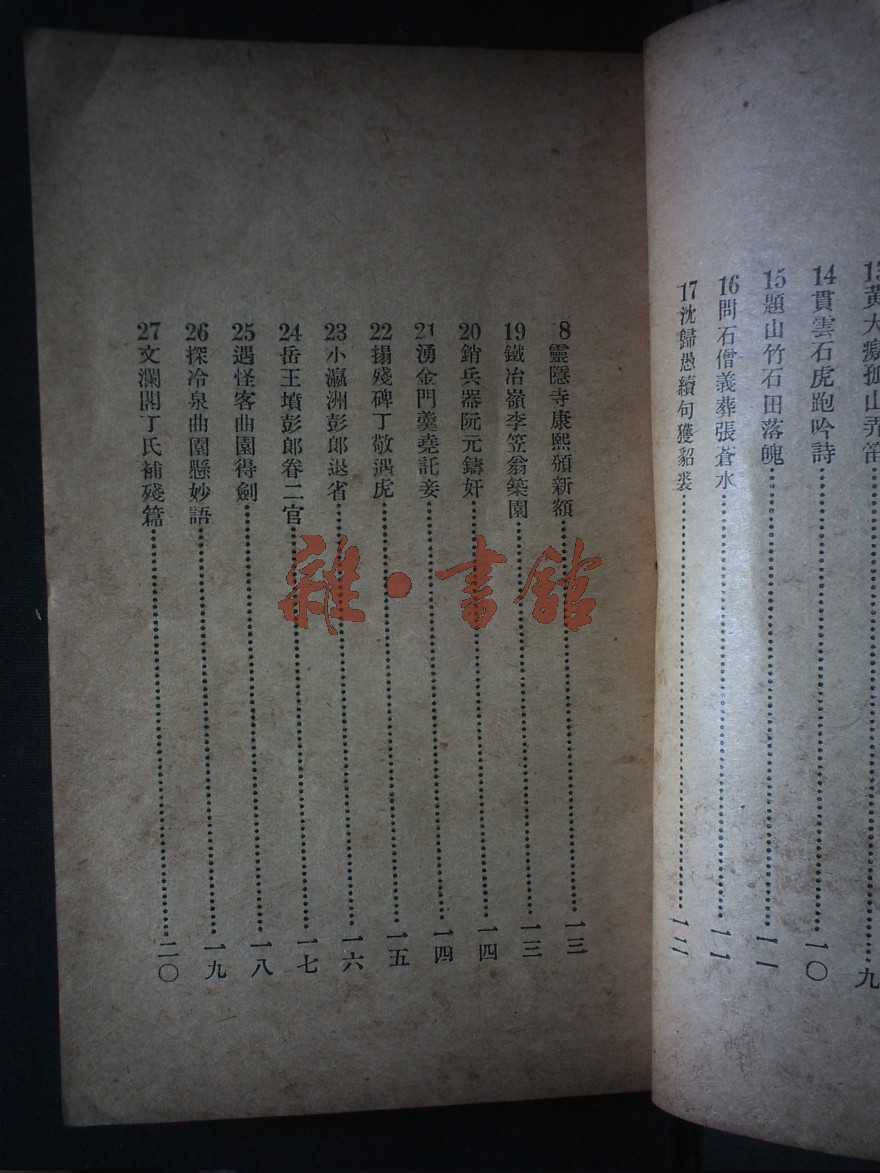 13黃大癡孤山弄笛………九
14貫雲石虎跑吟詩………一〇
15題山竹石田落魄………一一
16問石僧義葬張蒼水………一一
17沈歸愚續句獲貂裘………一二
8靈隱寺康熙頒新額………一三
19鐵冶嶺李笠翁築園………一三
20銷兵器阮元鑄奸………一四
21湧金門羹堯託妾………一四
22搨殘碑丁敬遇虎………一五
23小瀛洲彭郎退省………一六
24岳王墳彭郎眷二官………一七
25遇怪客曲園得劍………一八
26探冷泉曲園懸妙語………一九
27文瀾閣丁氏補殘篇………二〇
雜·書館